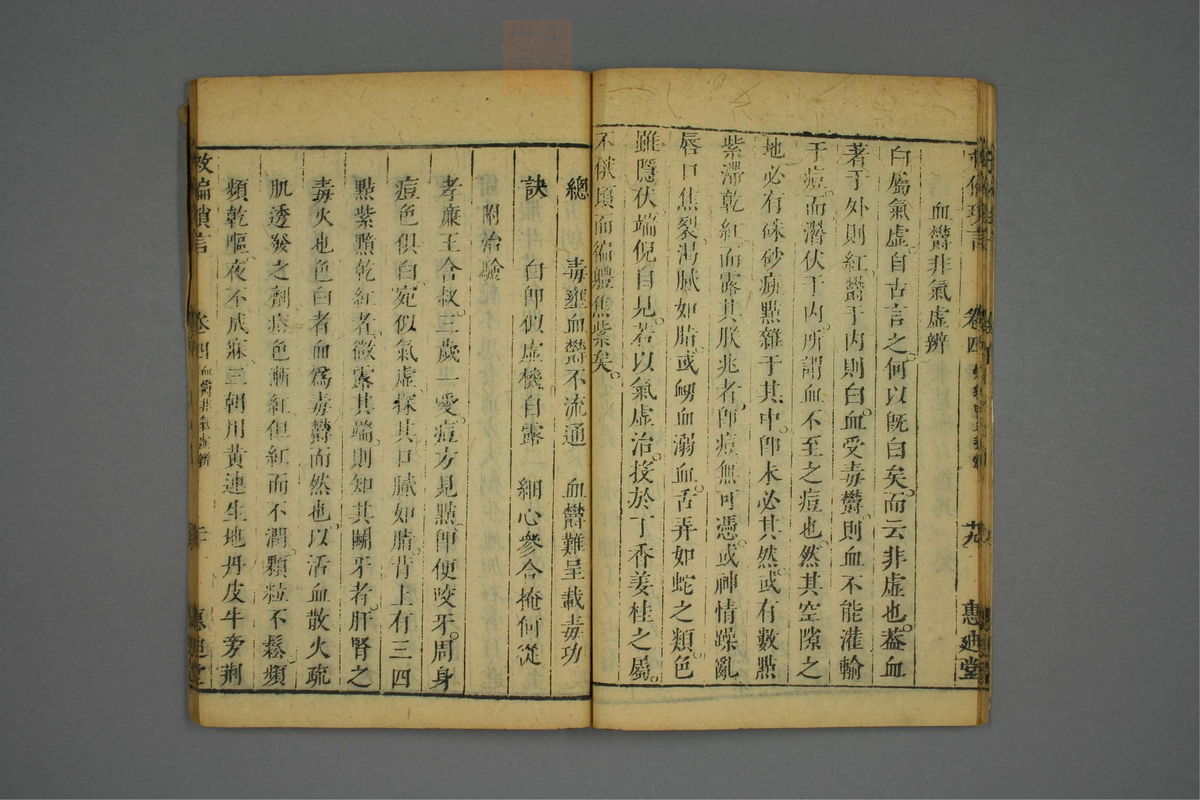 血欝非氣虛辨
白屬氣虛。自古言之。何以旣白矣。而云非虛也。葢血
著于外則紅。欝于内則白。血受毒欝。則血不能灌輸
于痘。而潛伏于内。所謂血不至之痘也。然其空隙之
地。必有硃砂㾗點雜于其中。卽未必其然。或有數點
紫滯乾紅而露其朕兆者。卽痘無可憑。或神情躁亂
唇口焦裂。渴膩如脂。或衂血溺血。舌弄如蛇之類。色
雖隱伏。端倪自見。若以氣虛治。投於丁香姜桂之屬。
不俟頃而編軆焦紫矣。
總 毒壅血欝不流通 血欝難呈載毒功
訣 白卽似虛機自露 細心參合掩何從
附治驗
孝廉王合叔。三歲一愛。痘方見點。卽便咬牙。周身
痘色俱白。宛似氣虛。探其口膩如脂。背上有三四
點紫黯乾紅者。微露其端。則知其鬭牙者。肝腎之
毒火也。色白者血爲毒欝而然也。以活血散火疏
肌透發之劑。痘色漸紅。但紅而不潤。顆粒不鬆。頻
頻乾嘔。夜不成寐。三朝用黃連生地丹皮牛旁荆
救偏瑣言 卷四 血欝非氣虛辨 惠迪堂